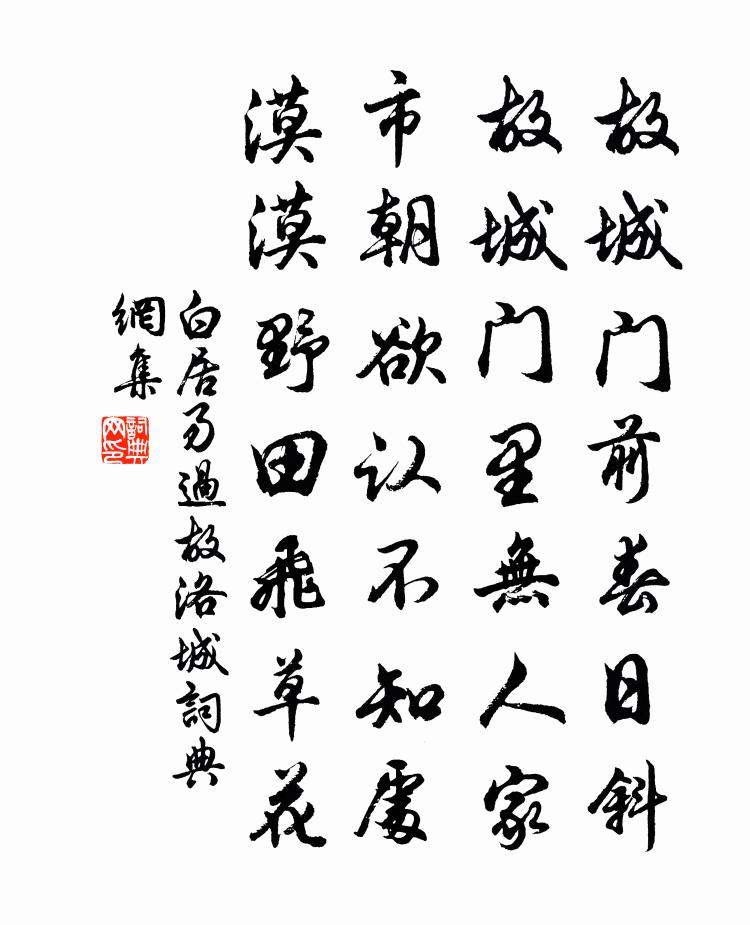 故城门前春日斜
故城门里無人家
市朝欲认不知處
漠漠野田飛草花
白居易過故洛城詞典
網集
詞典网印